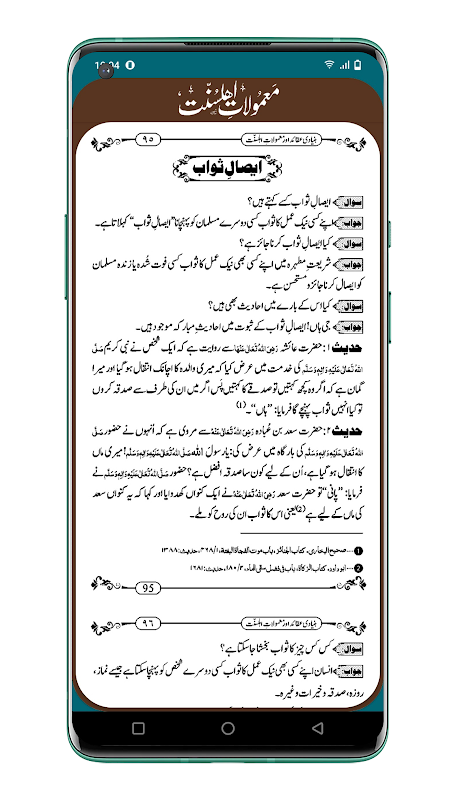 معمولاتِ اہلسنّت
بنیادی عقائد اور معمولاتِ اہلسنّت
۹۵
ایصالِ ثواب
سوال ایصالِ ثواب کسے کہتے ہیں؟
جواب اپنے کسی نیک عمل کا ثواب کسی دوسرے مسلمان کو پہنچانا ”ایصالِ ثواب“ کہلاتا ہے۔
سوال کیا ایصالِ ثواب کرنا جائز ہے؟
جواب شریعتِ مطہرہ میں اپنے کسی بھی نیک عمل کا ثواب کسی فوت شُدہ یا زندہ مسلمان
کو ایصال کرنا جائز و مستحسن ہے۔
سوال کیا اس کے بارے میں احادیث بھی ہیں؟
جواب جی ہاں! ایصالِ ثواب کے ثبوت میں احادیثِ مبارکہ موجود ہیں۔
حدیث ۱: حضرت عائشہ رَضِیَ اللہُ تَعَالٰی عَنْہَا سے روایت ہے کہ ایک شخص نے نبی کریم صَلَّی
اللہُ تَعَالٰی عَلَیْہِ وَاٰلِہٖ وَسَلَّم کی خدمت میں عرض کیا کہ میری والدہ کا اچانک انتقال ہو گیا اور میرا
گمان ہے کہ اگر وہ کچھ کہتیں تو صدقے کا کہتیں پس اگر میں ان کی طرف سے صدقہ کروں
تو کیا انہیں ثواب پہنچے گا فرمایا: ”ہاں“۔ (1)
حدیث ۲: حضرت سعد بن عُبادہ رَضِیَ اللہُ تَعَالٰی عَنْہُ سے مروی ہے کہ اُنہوں نے حضور صَلَّی
اللہُ تَعَالٰی عَلَیْہِ وَاٰلِہٖ وَسَلَّم کی بارگاہ میں عرض کی: یارسولَ اللہ صَلَّی اللہُ تَعَالٰی عَلَیْہِ وَاٰلِہٖ وَسَلَّم! میری ماں
کا انتقال ہو گیا ہے، اُن کے لیے کون سا صدقہ افضل ہے؟ حضور صَلَّی اللہُ تَعَالٰی عَلَیْہِ وَاٰلِہٖ وَسَلَّم نے
فرمایا: ”پانی“ تو حضرت سعد رَضِیَ اللہُ تَعَالٰی عَنْہُ نے ایک کنواں کھدوایا اور کہا کہ یہ کنواں سعد
کی ماں کے لیے ہے (2) یعنی اس کا ثواب ان کی روح کو ملے۔
1 ...صحیح البخاری، کتاب الجنائز، باب موت الفجاۃ البغتۃ، ۱/۴۶۸، حدیث: ۱۳۸۸
2 ...ابو داود، کتاب الزکاۃ، باب فی فضل سقی الماء، ۲/۱۸۰، حدیث: ۱۶۸۱
95
بنیادی عقائد اور معمولاتِ اہلسنّت
۹۶
سوال کس کس چیز کا ثواب بخشا جا سکتا ہے؟
جواب انسان اپنے کسی بھی نیک عمل کا ثواب کسی دوسرے شخص کو پہنچا سکتا ہے جیسے نماز،
روزہ، صدقہ و خیرات وغیرہ۔